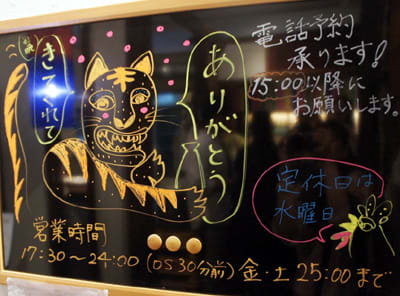 きてくれて
ありがとう
電話予約
承ります!
15:00以降に
お願いします。
定休日は
水曜日
営業時間
17:30〜24:00(OS30分前)金・土25:00まで